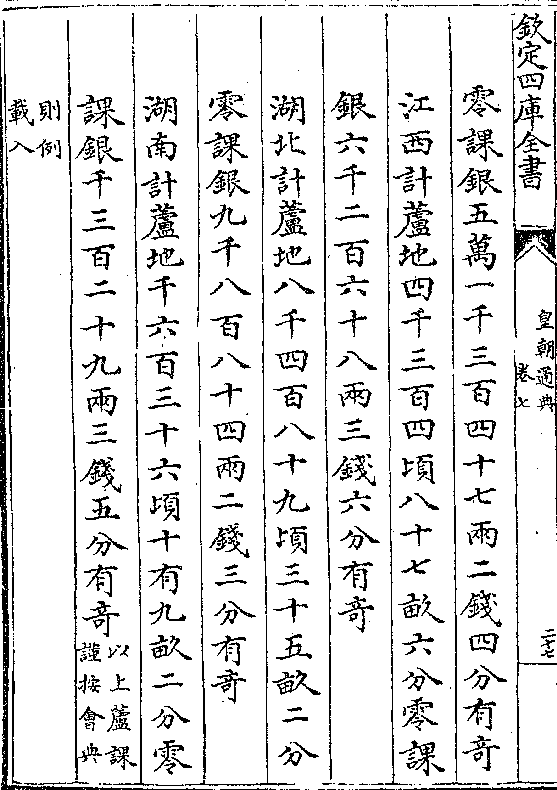 欽定四庫全書
皇朝通典
卷七
二十七
零課銀五萬一千三百四十七兩二錢四分有竒
江西計蘆地四千三百四頃八十七畝六分零課
銀六千二百六十八兩三錢六分有竒
湖北計蘆地八千四百八十九頃三十五畝二分
零課銀九千八百八十四兩二錢三分有竒
湖南計蘆地千六百三十六頃十有九畝二分零
課銀千三百二十九兩三錢五分有竒
以上蘆課
謹按會典
則例
載入